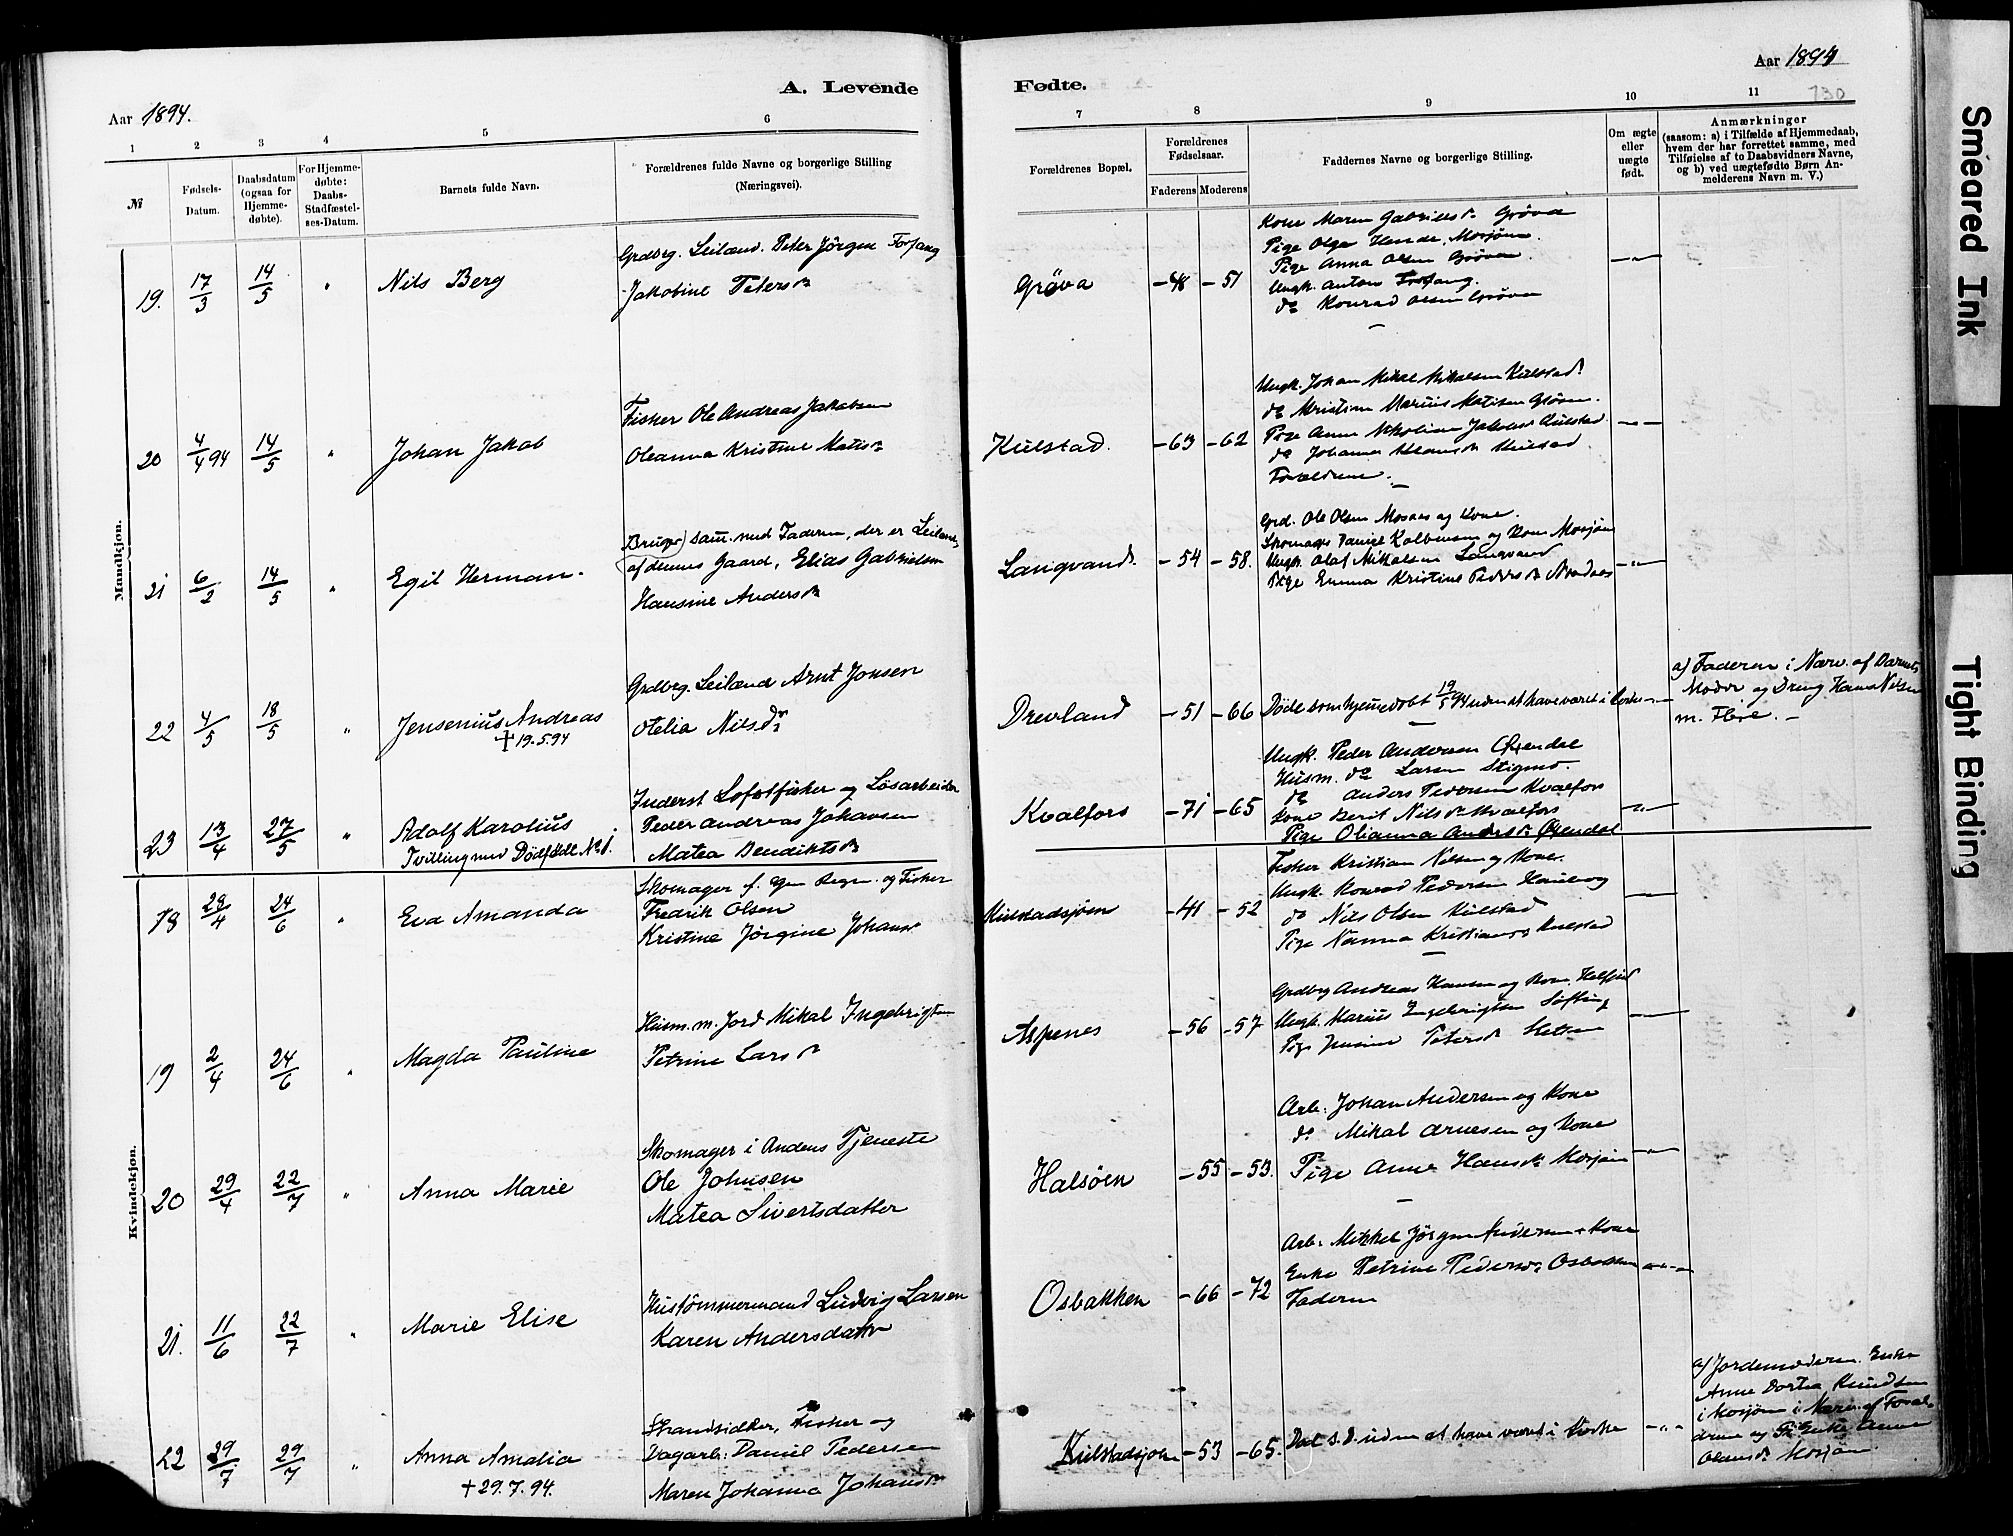 A. Levende
Fødte.
Aar 1894.
Aar 1894
130
1 2 3 4 5 6 7 8 9 10 11
№
Fødsels-Datum.
Daabsdatum (ogsaa for Hjemme-døbte).
For Hjemme-døbte: Daabs-Stadfæstel-ses-Datum.
Barnets fulde Navn.
Forældrenes fulde Navne og borgerlige Stilling
(Næringsvei).
Forældrenes Bopæl.
Forældrenes Fødselsaar.
Faderens Moderens
Faddernes Navne og borgerlige Stilling.
Om ægte eller uægte født.
Anmærkninger
(saasom: a) i Tilfælde af Hjemmedaab,
hvem der har forrettet samme, med
Tilføielse af to Daabsvidners Navne,
og b) ved uægtefødte Børn An-
melderens Navn m. V.)
Mandkjøn.
19. 17/3 14/5 " Nils Berg
Grdbrg. Leilænd. Peter Jörgen Forfang
Jakobine Petersdr
Grøva -48 -51
Kone Maren Gabrielsdr Grøva
Pige Olga Hende, Mosjöen.
Pige Anna Olsen Grøva
Ungk. Anton Forfang.
do Konrad Olsen Grøva
20 4/4 94 14/5 " Johan Jakob
Fisker Ole Andreas Jakobsen
Oleanna Kristine Matisdr
Kulstad. -63 -62
Ungk. Johan Mikal Mikalsen Kulstad.
do Kristian Marius Matisen Grøva.
Pige Anne Nikoline Jakobsd Kulstad
do Johanna Hansdr Kulstad
Forældrene.
21 6/2 14/5 " Egil Herman.
Bruger sam. med Faderen, der er Leilænd.
af dennes Gaard, Elias Gabrielsen
Hansine Andersdr
Langvand. -54 -58.
Grd. Ole Olsen Mosaas og Kone.
Skomager Daniel Kolbensen og Kone Mosjöen
Ungk. Olaf Mikalsen Langvand
Pige Emma Kristine Pedersdr
22 4/5 18/5 " Jensenius Andreas
† 19.5.94
Grdbrg. Leilænd Arnt Jonsen
Otelia Nilsdr
Drevland -51 -66
Döde som hjemmedöbt 19/5 94 uden at have været i Kirke
a) Faderen i Nærv. af Barnets
Moder og Dreng Hans Nilsen
m. Flere. -
23 13/4 27/5 " Adolf Karolius
Tvilling med Dödfödt No 1.
Inderst Lofotfisker og Lösarbeider
Peder Andreas Johansen
Matea Bendiktsdr
Kvalfors -71 -65
Ungk. Peder Andersen Öxendal
Husm. do Larsen Stigmo.
do Anders Pedersen Kvalfors
Kone Berit Nilsdr Kvalfors
Pige Olianna Andersdr Öxendal
Kvindekjøn.
18 28/4 24/6 " Eva Amanda
Skomager f. egen Regn. og Fisker
Fredrik Olsen
Kristine Jörgine Johansd
Kulstadsjöen -41 -52
Fisker Kristian Nilsen og Kone.
Ungk. Konrad Pedersen
do Nils Olsen Kulstad
Pige Nanna Kristiansd Kulstad
19 2/4 24/6 " Magda Pauline
Husm. m. Jord Mikal Ingebrigtsen
Petrine Larsdr
Aspenes -56 -57
Grdbrg Andreas Hansen og Kone,
Ungk. Marius Ingebrigtsen Söfting
Pige Petersdr
20 29/4 22/7 " Anna Marie
Skomager i Andens Tjeneste
Ole Johnsen
Matea Sivertsdatter
Halsöen -55 -53.
Arb. Johan Andersen og Kone
do Mikal Arnesen og Kone
Pige Anne Hansdr Mosjöen
21. 11/6 22/7 " Marie Elise
Hustömmermand Ludvig Larsen
Karen Andersdatter
Osbakken -66 -72
Arb. Mikkel Jörgen Andersen + Kone
Enke Petrine Pedersdr Osbakken
Faderen
22 29/7 29/7 " Anna Amalia
+ 29.7.94.
Strandsidder, Fisker og
Dagarb: Daniel Pedersen
Maren Johanna Johansdr
Kulstadsjöen -53 -65.
Död s.D. uden at have været i Kirke
a) Jordemoderen Enke
Anne Dortea Knudsen
i Mosjöen i Nærv. af Foræl-
drene og Enke Anne
Olausdr Mosjöen.
Smeared Ink
Tight Binding